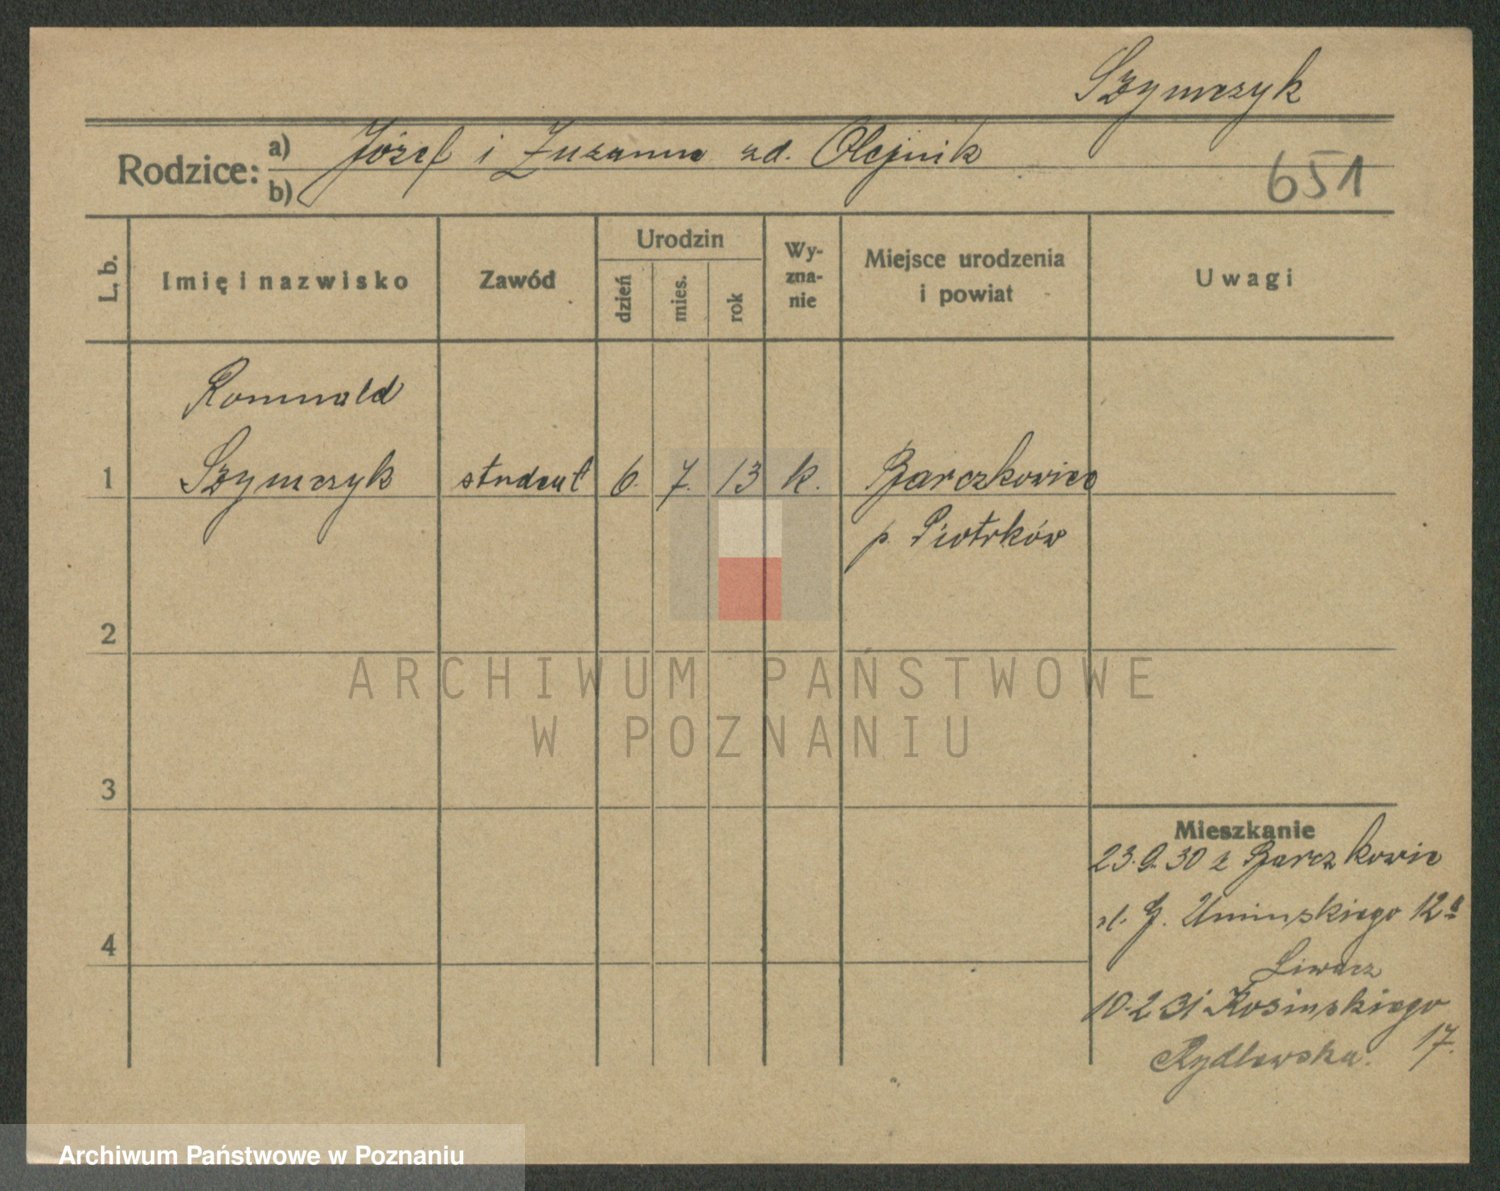 Szymczyk
Rodzice: a) Józef i Zuzanna zd. Olejnik
b)
651
L. b. Imię i nazwisko Zawód Urodzin dzień mies. rok Wy-zna-nie Miejsce urodzenia i powiat Uwagi
Romuald
1 Szymczyk student 6. 7. 13 k. Barczkowice
p. Piotrków
2
ARCHIWUM PAŃSTWOWE
W POZNANIU
3
Mieszkanie
23.9.30 z Barczkowic
J. Umińskiego 12a
4
10.2 31 Kosińskiego
Rydlewska. 17.
Archiwum Państwowe w Poznaniu